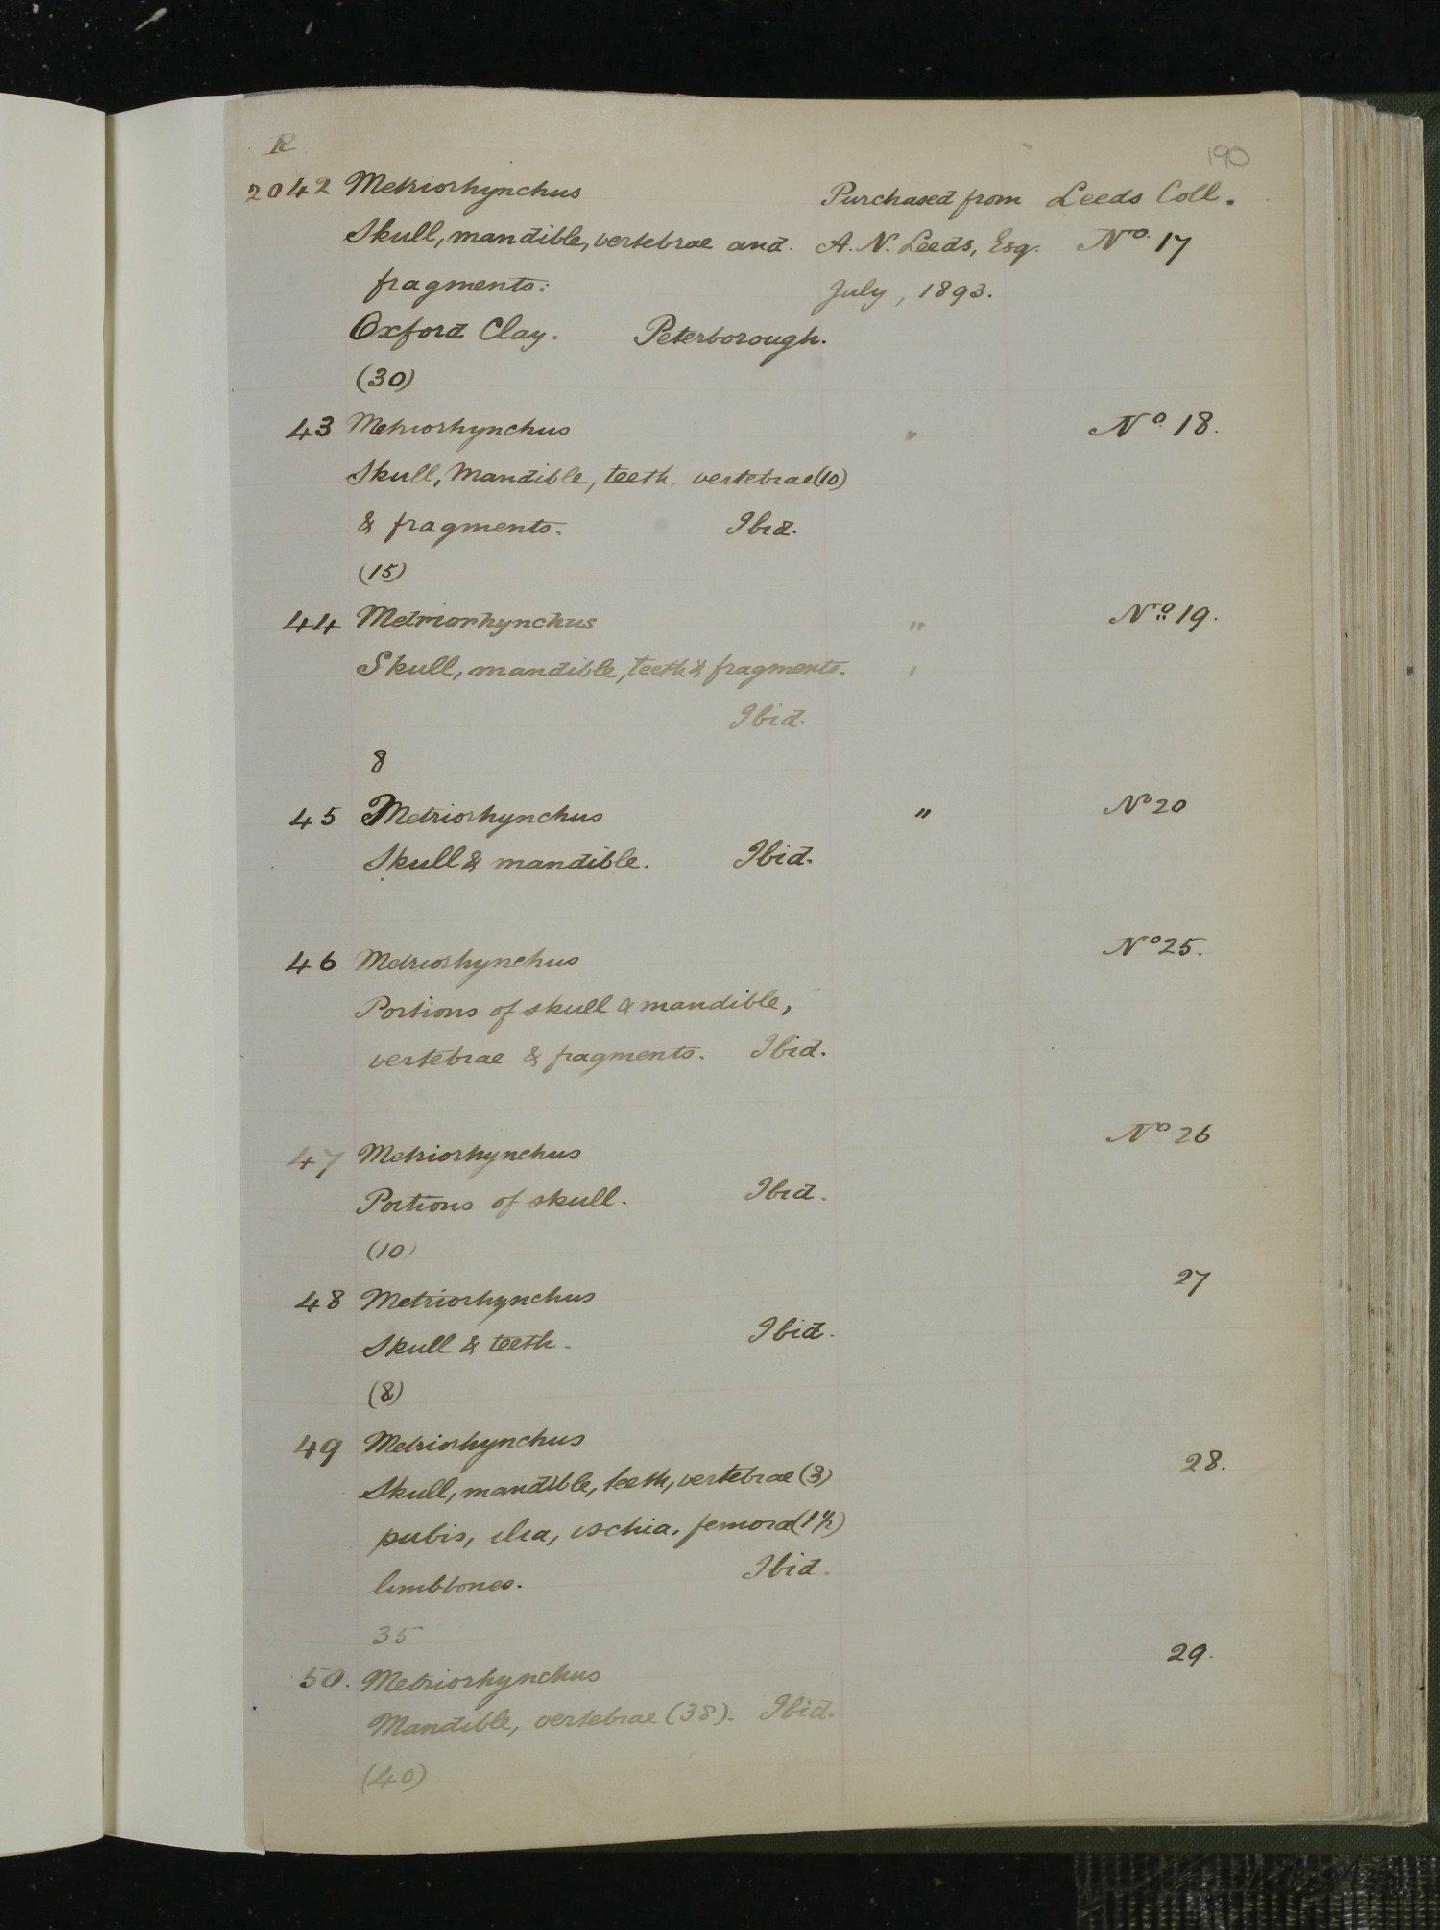 R
190
2042 Metriorhynchus Purchased from Leeds Coll.
Skull, mandible, vertebrae and A. N. Leeds, Esq. No. 17
fragments. July, 1893.
Oxford Clay. Peterborough.
(30)
43 Metriorhynchus " No. 18.
Skull, Mandible, teeth, vertebrae (10)
& fragments. Ibid.
(15)
44 Metriorhynchus " No. 19.
Skull, mandible, teeth & fragments. '
Ibid.
8
45 Metriorhynchus " No 20
Skull & mandible. Ibid.
46 Metriorhynchus No 25.
Portions of skull & mandible,
vertebrae & fragments. Ibid.
47 Metriorhynchus No 26
Portions of skull. Ibid.
(10)
48 Metriorhynchus 27
Skull & teeth. Ibid.
(8)
49 Metriorhynchus 28.
Skull, mandible, teeth, vertebrae (3)
pubis, ilia, ischia, femora (1½)
limbbones. Ibid.
35
50. Metriorhynchus 29.
Mandible, vertebrae (38). Ibid.
(40)